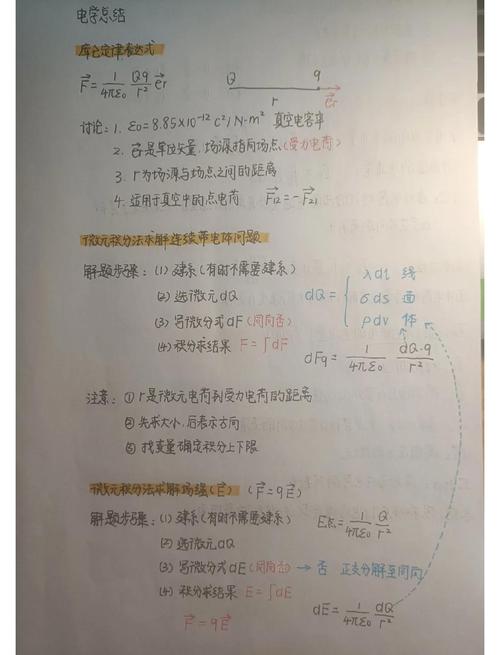 电学总结
库仑定律表达式
F⃗ = 1/4πε0 Qq/r² e⃗r
Q q
r e⃗r
讨论：1. ε0=8.85×10⁻¹² C²/N·m² 真空电容率
2. e⃗r是单位矢量，场源指向场点(受力电荷)
3. r为场源与场点之间的距离
4. 适用于真空中的点电荷 F⃗12=-F⃗21
微元积分法求解连续带电体问题
解题步骤：(1) 建系(有时不需要建系)
(2) 选微元dQ dQ= { λdl 线
σds 面
ρdv 体
(3) 写微分式dF(同向否)
(4) 积分求结果 F=∫dF dFq = 1/4πε0 dQ·q/r²
注意：① r是微元电荷到受力电荷的距离
② 先求大小，后表示方向
③ 找变量确定积分上下限
微元积分法求解场强(E⃗) (F⃗=qE⃗)
解题步骤：(1) 建系(有时不需要建系) E点= 1/4πε0 Q/r²
(2) 选微元dQ
(3) 写微分式dE(同向否) → 否 正交分解至同向
(4) 积分求结果 E=∫dE dE= 1/4πε0 dQ/r²
F⃗=qE⃗